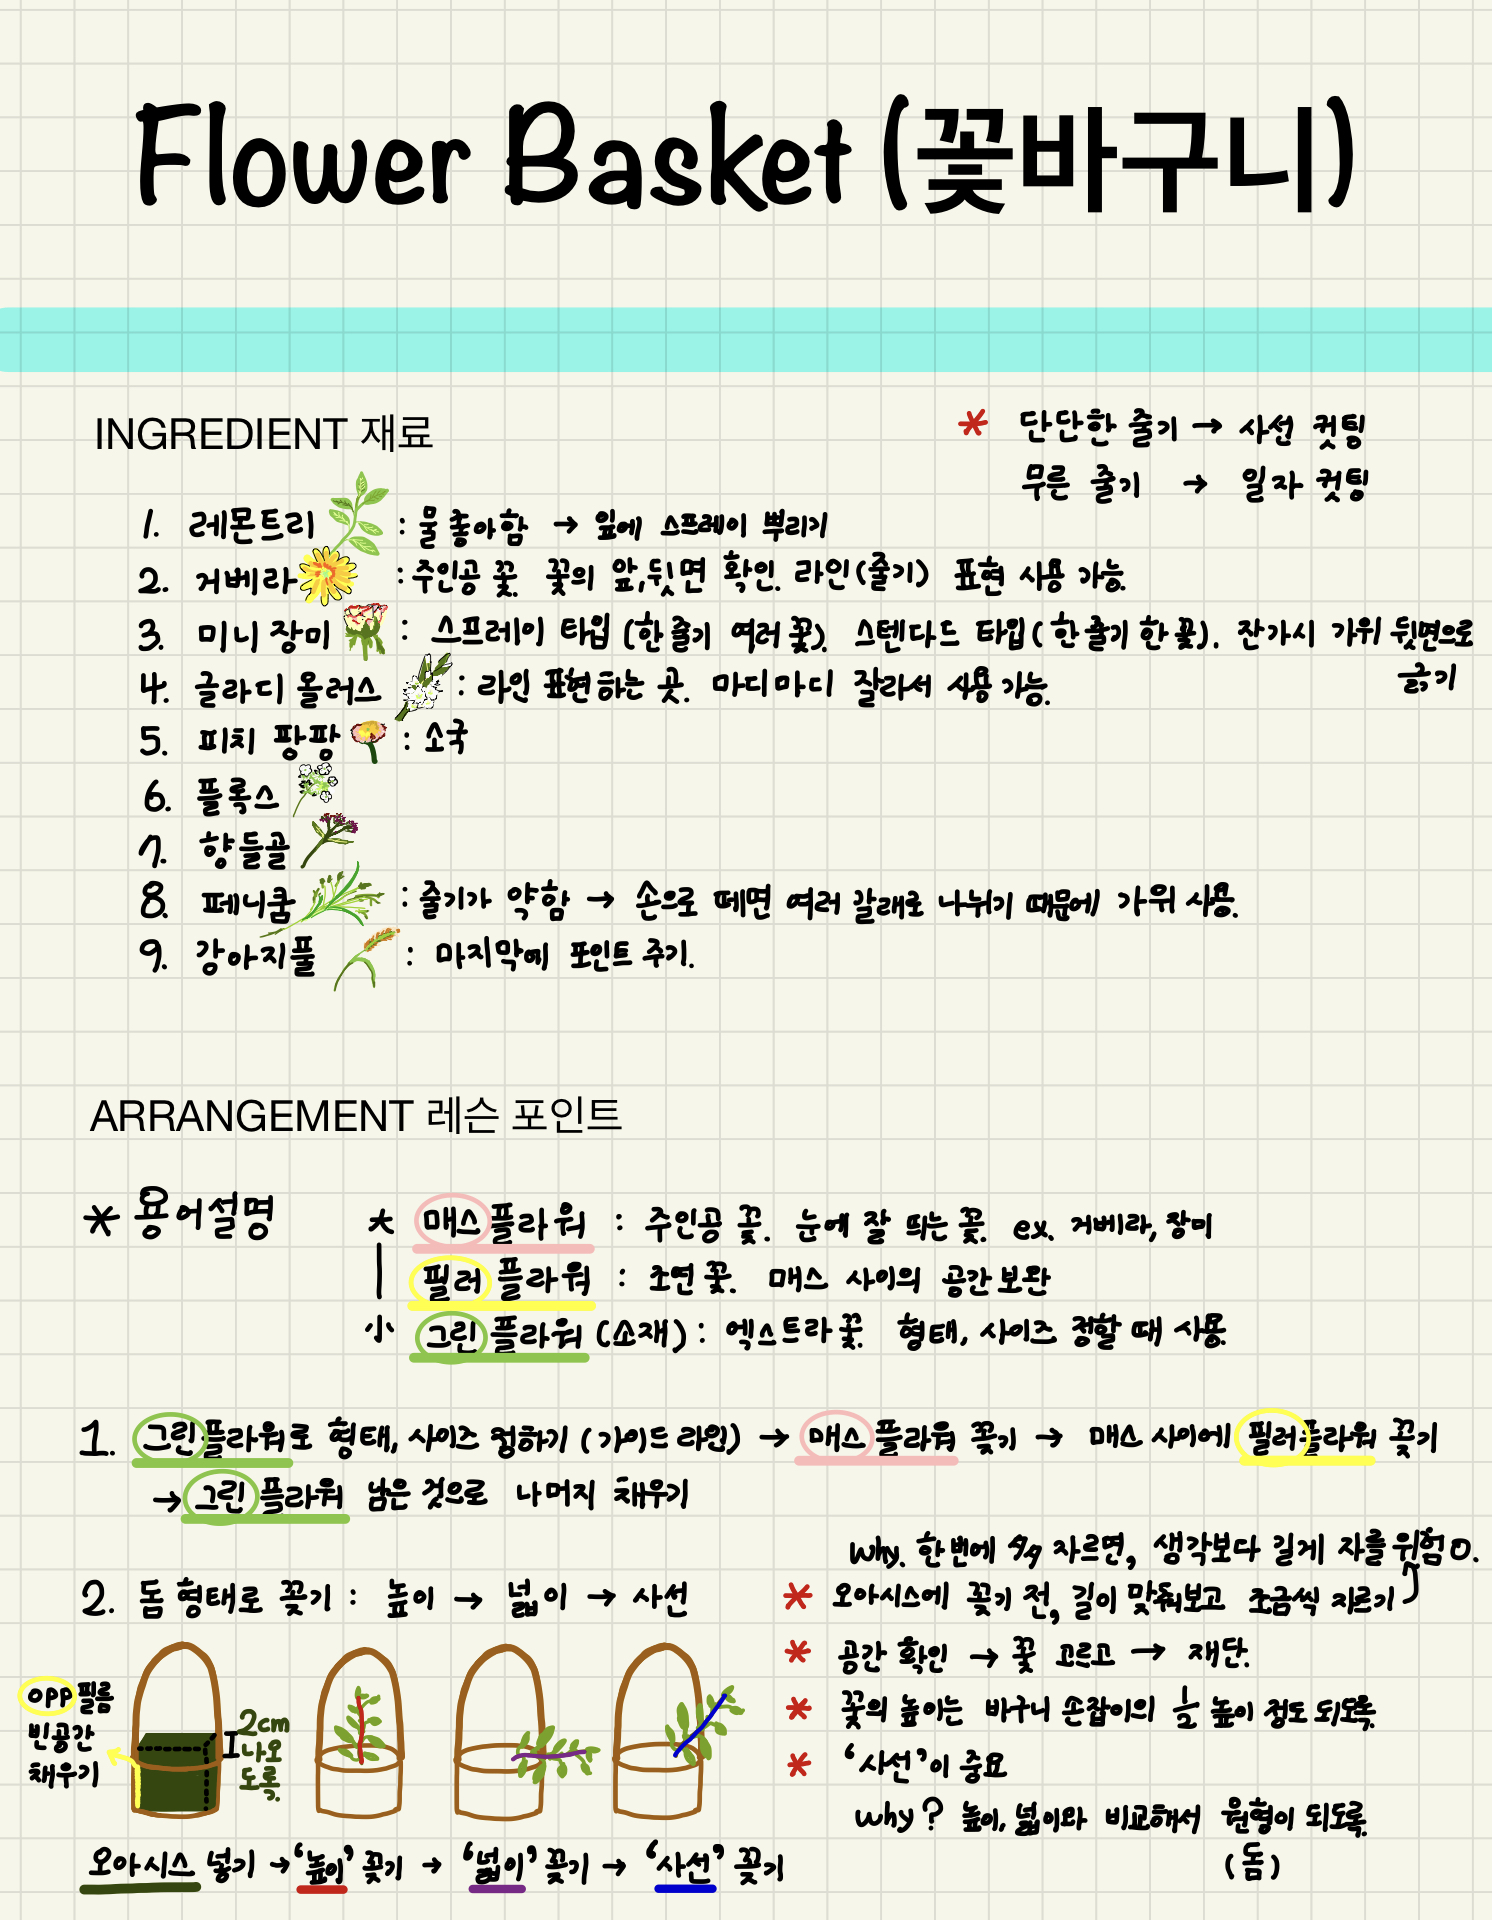 Flower Basket (꽃바구니)
INGREDIENT 재료
* 단단한 줄기 → 사선 컷팅
무른 줄기 → 일자 컷팅
1. 레몬트리 : 물 좋아함 → 잎에 스프레이 뿌리기
2. 거베라 : 주인공 꽃. 꽃의 앞,뒷면 확인. 라인(줄기) 표현 사용 가능.
3. 미니 장미 : 스프레이 타입 (한 줄기 여러 꽃). 스텐다드 타입 (한 줄기 한 꽃). 잔가시 가위 뒷면으로
긁기
4. 글라디 올러스 : 라인 표현하는 곳. 마디마디 잘라서 사용 가능.
5. 피치 팡팡 : 소국
6. 플록스
7. 향등골
8. 페니쿰 : 줄기가 약함 → 손으로 떼면 여러 갈래로 나뉘기 때문에 가위 사용.
9. 강아지풀 : 마지막에 포인트 주기.
ARRANGEMENT 레슨 포인트
* 용어설명
大 매스 플라워 : 주인공 꽃. 눈에 잘 띄는 꽃. ex. 거베라, 장미
필러 플라워 : 조연 꽃. 매스 사이의 공간 보완
小 그린 플라워 (소재) : 엑스트라 꽃. 형태, 사이즈 정할 때 사용.
1. 그린 플라워로 형태, 사이즈 정하기 (가이드 라인) → 매스 플라워 꽂기 → 매스 사이에 필러 플라워 꽂기
→ 그린 플라워 남은 것으로 나머지 채우기
why. 한번에 싹 자르면, 생각보다 길게 자를 위험 O.
2. 돔 형태로 꽂기 : 높이 → 넓이 → 사선
* 오아시스에 꽂기 전, 길이 맞춰보고 조금씩 자르기
* 공간 확인 → 꽃 고르고 → 재단.
* 꽃의 높이는 바구니 손잡이의 1/2 높이 정도 되도록.
* '사선'이 중요
why? 높이, 넓이와 비교해서 원형이 되도록.
(돔)
OPP 필름
빈공간
채우기
2cm
나오
도록.
오아시스 넣기 → '높이' 꽂기 → '넓이' 꽂기 → '사선' 꽂기